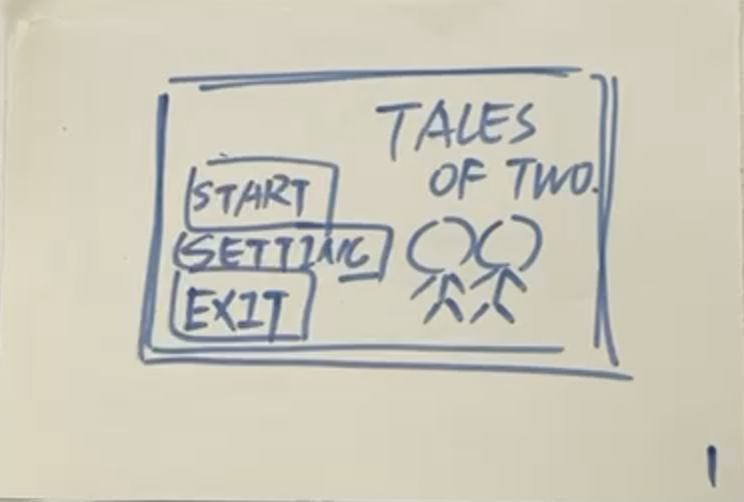 TALES
OF TWO.
START
SETTING
EXIT
1